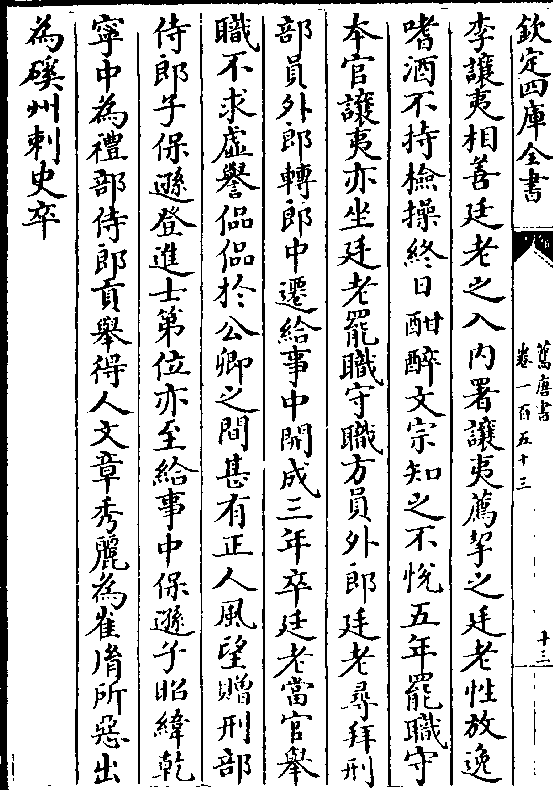 欽定四庫全書
舊唐書
卷一百五十三
十三
李讓夷相善廷老之入内署讓夷薦挈之廷老性放逸
嗜酒不持檢操終日酣醉文宗知之不悅五年罷職守
本官讓夷亦坐廷老罷職守職方員外郎廷老尋拜刑
部員外郎轉郎中遷給事中開成三年卒廷老當官舉
職不求虛譽侃侃於公卿之間甚有正人風望贈刑部
侍郎子保遜登進士第位亦至給事中保遜子昭緯乾
寧中為禮部侍郎貢舉得人文章秀麗為崔𦙍所惡出
為磎州刺史卒